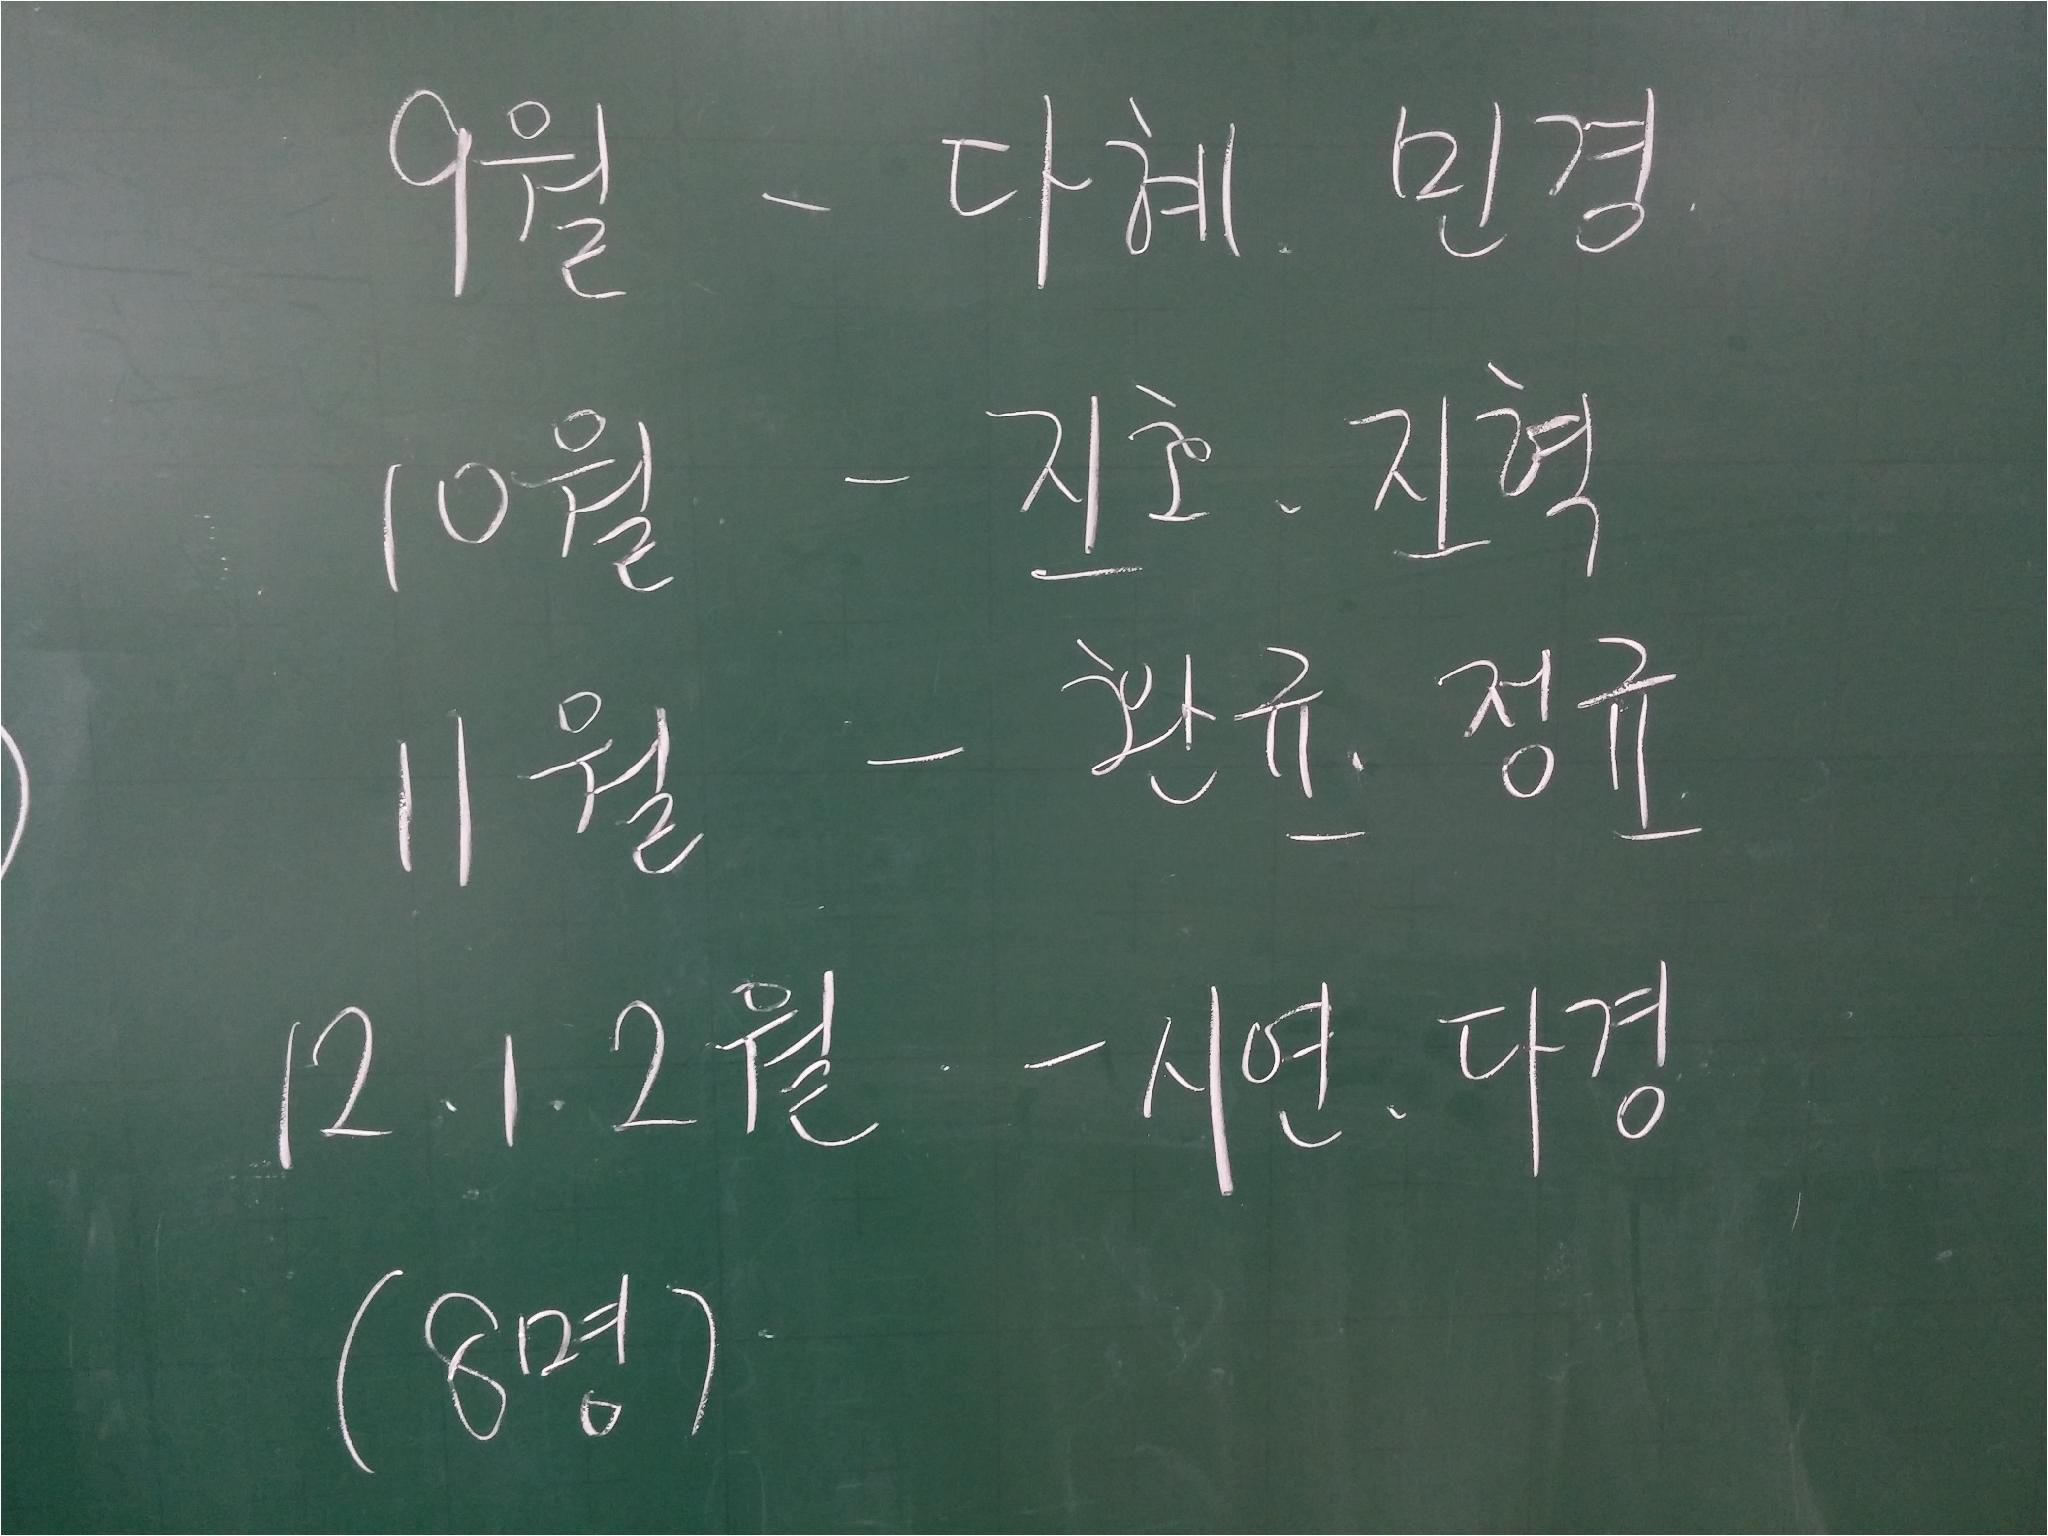 9월 - 다혜. 민경.
10월 - 지호. 지혁
11월 - 환규. 정규
12.1.2월 - 시연. 다경
(8명)